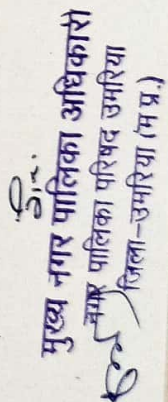 मुख्य नगर पालिका अधिकारी
नगर पालिका परिषद उमरिया
जिला-उमरिया (म.प्र.)